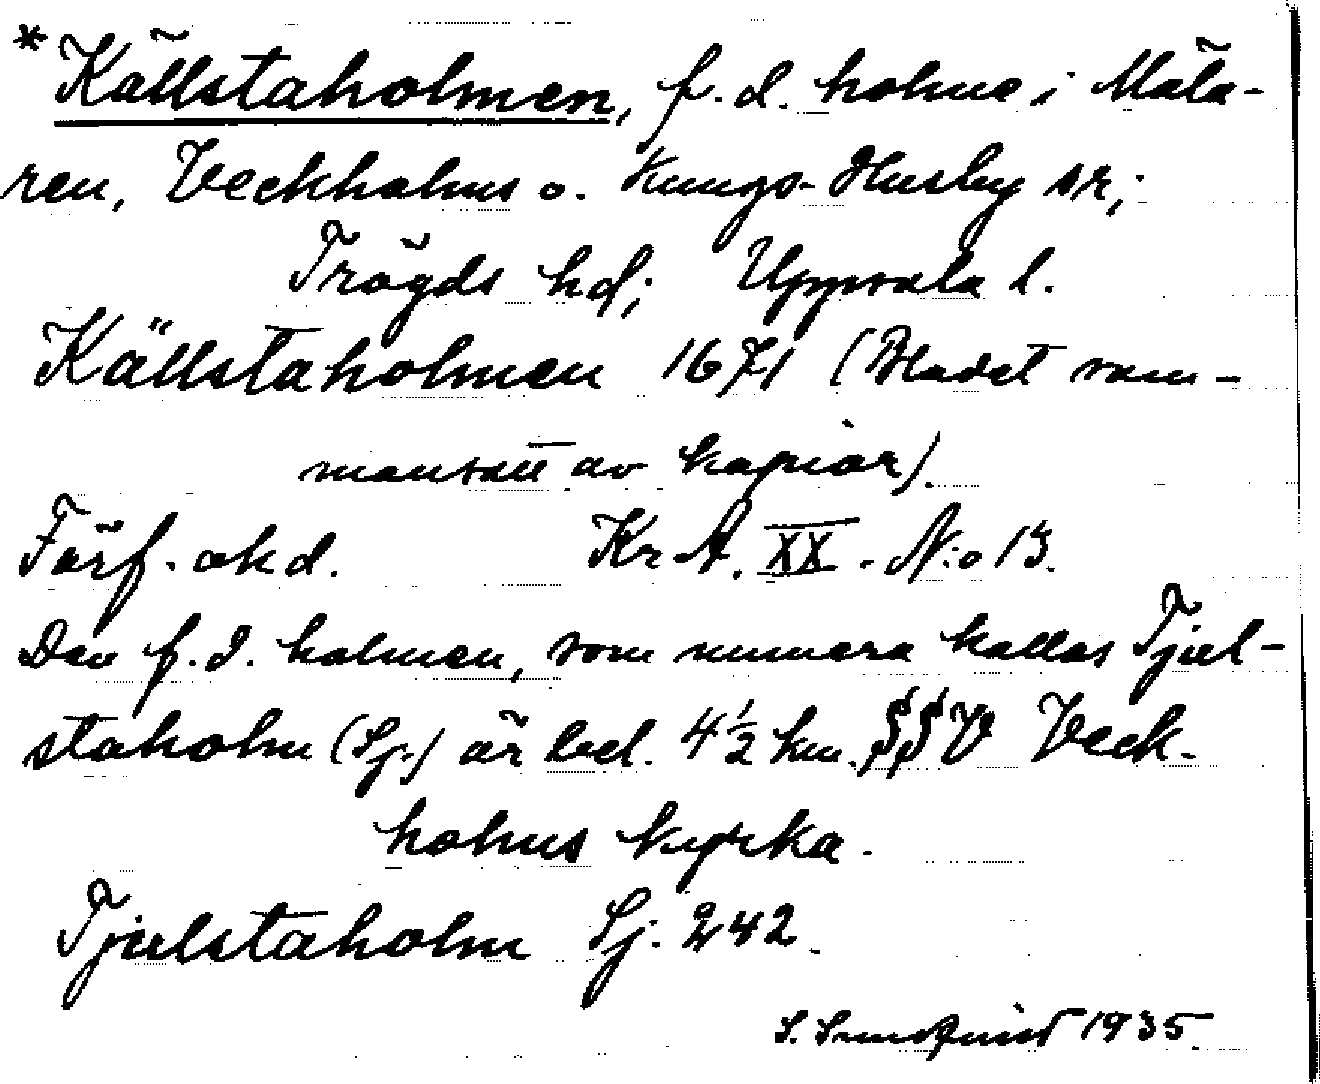 *Källstaholmen, f.d. holme i Mäla-
ren, Veckholms o. Kungs-Husby sr,;
Trögds hd; Uppsala l.
Källstaholmen 1671 (Bladet sam-
mansatt av kopior).
Förf. okd. KrA. XX. N:o 13.
Den f.d. holmen, som numera kallas Tjul-
staholm (Sj.) är bel. 4½ km. SSV Veck-
holms kyrka.
Tjulstaholm Sj. 242.
S. Sundquist 1935.